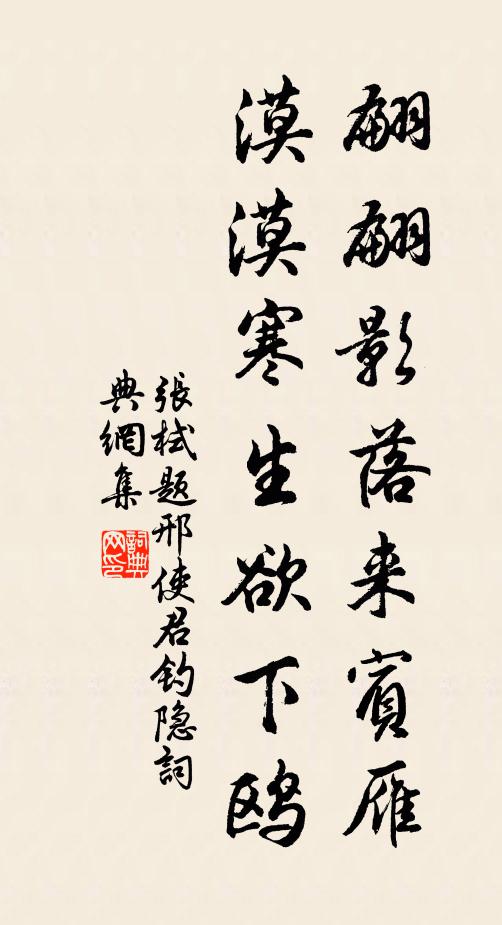 翩翩影落来賓雁
漠漠寒生欲下鸥
張栻题邢使君钓隐詞
典網集
詞典
网印